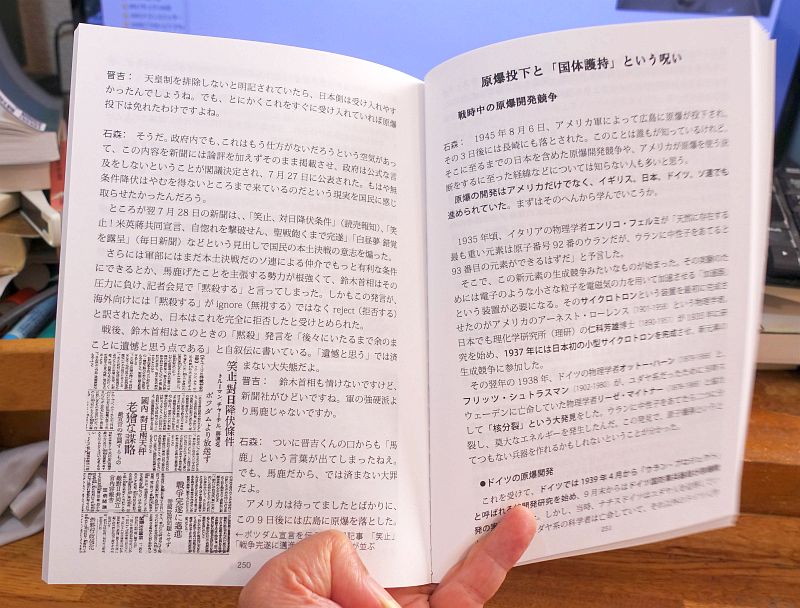 晋吉：　天皇制を排除しないと明記されていたら、日本側は受け入れやす
かったんでしょうね。でも、とにかくこれをすぐに受け入れていれば原爆
投下は免れたわけですよね。
石森：　そうだ。政府内でも、これはもう仕方がないだろうという空気があっ
て、この内容を新聞には論評を加えずそのまま掲載させ、政府は公式な言
及をしないということが閣議決定され、7月27日に公表された。もはや無
条件降伏はやむを得ないところまで来ているのだという現実を国民に感じ
取らせたかったんだろう。
ところが翌7月28日の新聞は、「笑止、対日降伏条件」（読売報知）、「笑
止！米英蔣共同宣言、自惚れを撃破せん、聖戦飽くまで完遂」「白昼夢 錯覚
を露呈」（毎日新聞）などという見出しで国民の本土決戦の意志を煽った。
さらには軍部にはまだ本土決戦だのソ連による仲介でもっと有利な条件
にできるとか、馬鹿げたことを主張する勢力が根強くて、鈴木首相はその
圧力に負け、記者会見で「黙殺する」と言ってしまった。しかもこの発言が、
海外向けには「黙殺する」が ignore（無視する）ではなく reject（拒否する）
と訳されたため、日本はこれを完全に拒否したと受けとめられた。
戦後、鈴木首相はこのときの「黙殺」発言を「後々にいたるまで余のま
ことに遺憾と思う点である」と自叙伝に書いている。「遺憾と思う」では済
まない大失態だよ。
晋吉：　鈴木首相も情けないですけど、
新聞社がひどいですね。軍の強硬派よ
り馬鹿じゃないですか。
石森：　ついに晋吉くんの口からも「馬
鹿」という言葉が出てしまったねえ。
でも、馬鹿だから、では済まない大罪
だよ。
アメリカは待ってましたとばかりに、
この9日後には広島に原爆を落とした。
←ポツダム宣言を伝
記事 「笑止」
「戦争完遂に邁進
が並ぶ
笑止 對日降伏條件
ポツダムより放送す
戰爭完遂に邁進
老獪な謀略
250
原爆投下と「国体護持」という呪い
戦時中の原爆開発競争
石森：　1945年8月6日、アメリカ軍によって広島に原爆が投下され、
その3日後には長崎にも落とされた。このことは誰もが知っているけれど、
そこに至るまでの日本を含めた原爆開発競争や、アメリカが原爆を使う決
断をするに至った経緯などについては知らない人も多いと思う。
原爆の開発はアメリカだけでなく、イギリス、日本、ドイツ、ソ連でも
進められていた。まずはそのへんから学んでいこうか。
1935年頃、イタリアの物理学者エンリコ・フェルミが「天然に存在する
最も重い元素は原子番号92番のウランだが、ウランに中性子をあてると
93番目の元素ができるはずだ」と予言した。
そこで、この新元素の生成競争みたいなものが始まった。その実験のた
めには電子のような小さな粒子を電磁気の力を用いて加速させる「加速器」
という装置が必要になる。そのサイクロトロンという装置を最初に完成さ
せたのがアメリカのアーネスト・ローレンス（1901-1958）という物理学者。
日本でも理化学研究所（理研）の仁科芳雄博士（1890-1951）が1935年に研
究を始め、1937年には日本初の小型サイクロトロンを完成させ、新元素の
生成競争に参加した。
その翌年の1938年、ドイツの物理学者オットー・ハーン（1879-1968）と、
フリッツ・シュトラスマン（1902-1980）が、ユダヤ系だったために当時ス
ウェーデンに亡命していた物理学者リーゼ・マイトナー（1878-1968）と協力
して「核分裂」という大発見をした。ウランに中性子をあてたら二つに分
裂し、莫大なエネルギーを発生したんだ。この発見で、原子爆弾という
てつもない兵器を作れるかもしれないということが分かってきた。
●ドイツの原爆開発
これを受けて、ドイツでは1939年4月から「ウラン・
と呼ばれる
開発研究を始め、9月末からは
発の
しかし、当時、ナチスドイツは
ダヤ系の科学者は亡命していて、
251